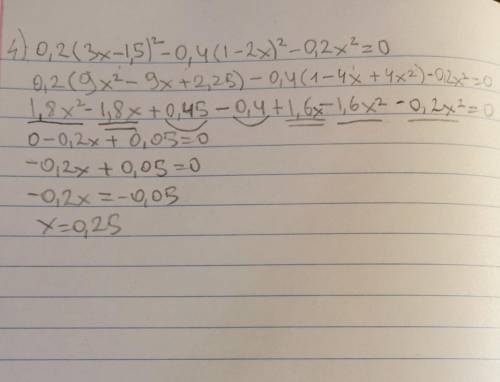 4) 0,2(3x-1,5)²-0,4(1-2x)²-0,2x²=0
0,2(9x²-9x+2,25)-0,4(1-4x+4x²)-0,2x²=0
1,8x²-1,8x+0,45-0,4+1,6x-1,6x²-0,2x²=0
0-0,2x+0,05=0
-0,2x+0,05=0
-0,2x=-0,05
x=0,25